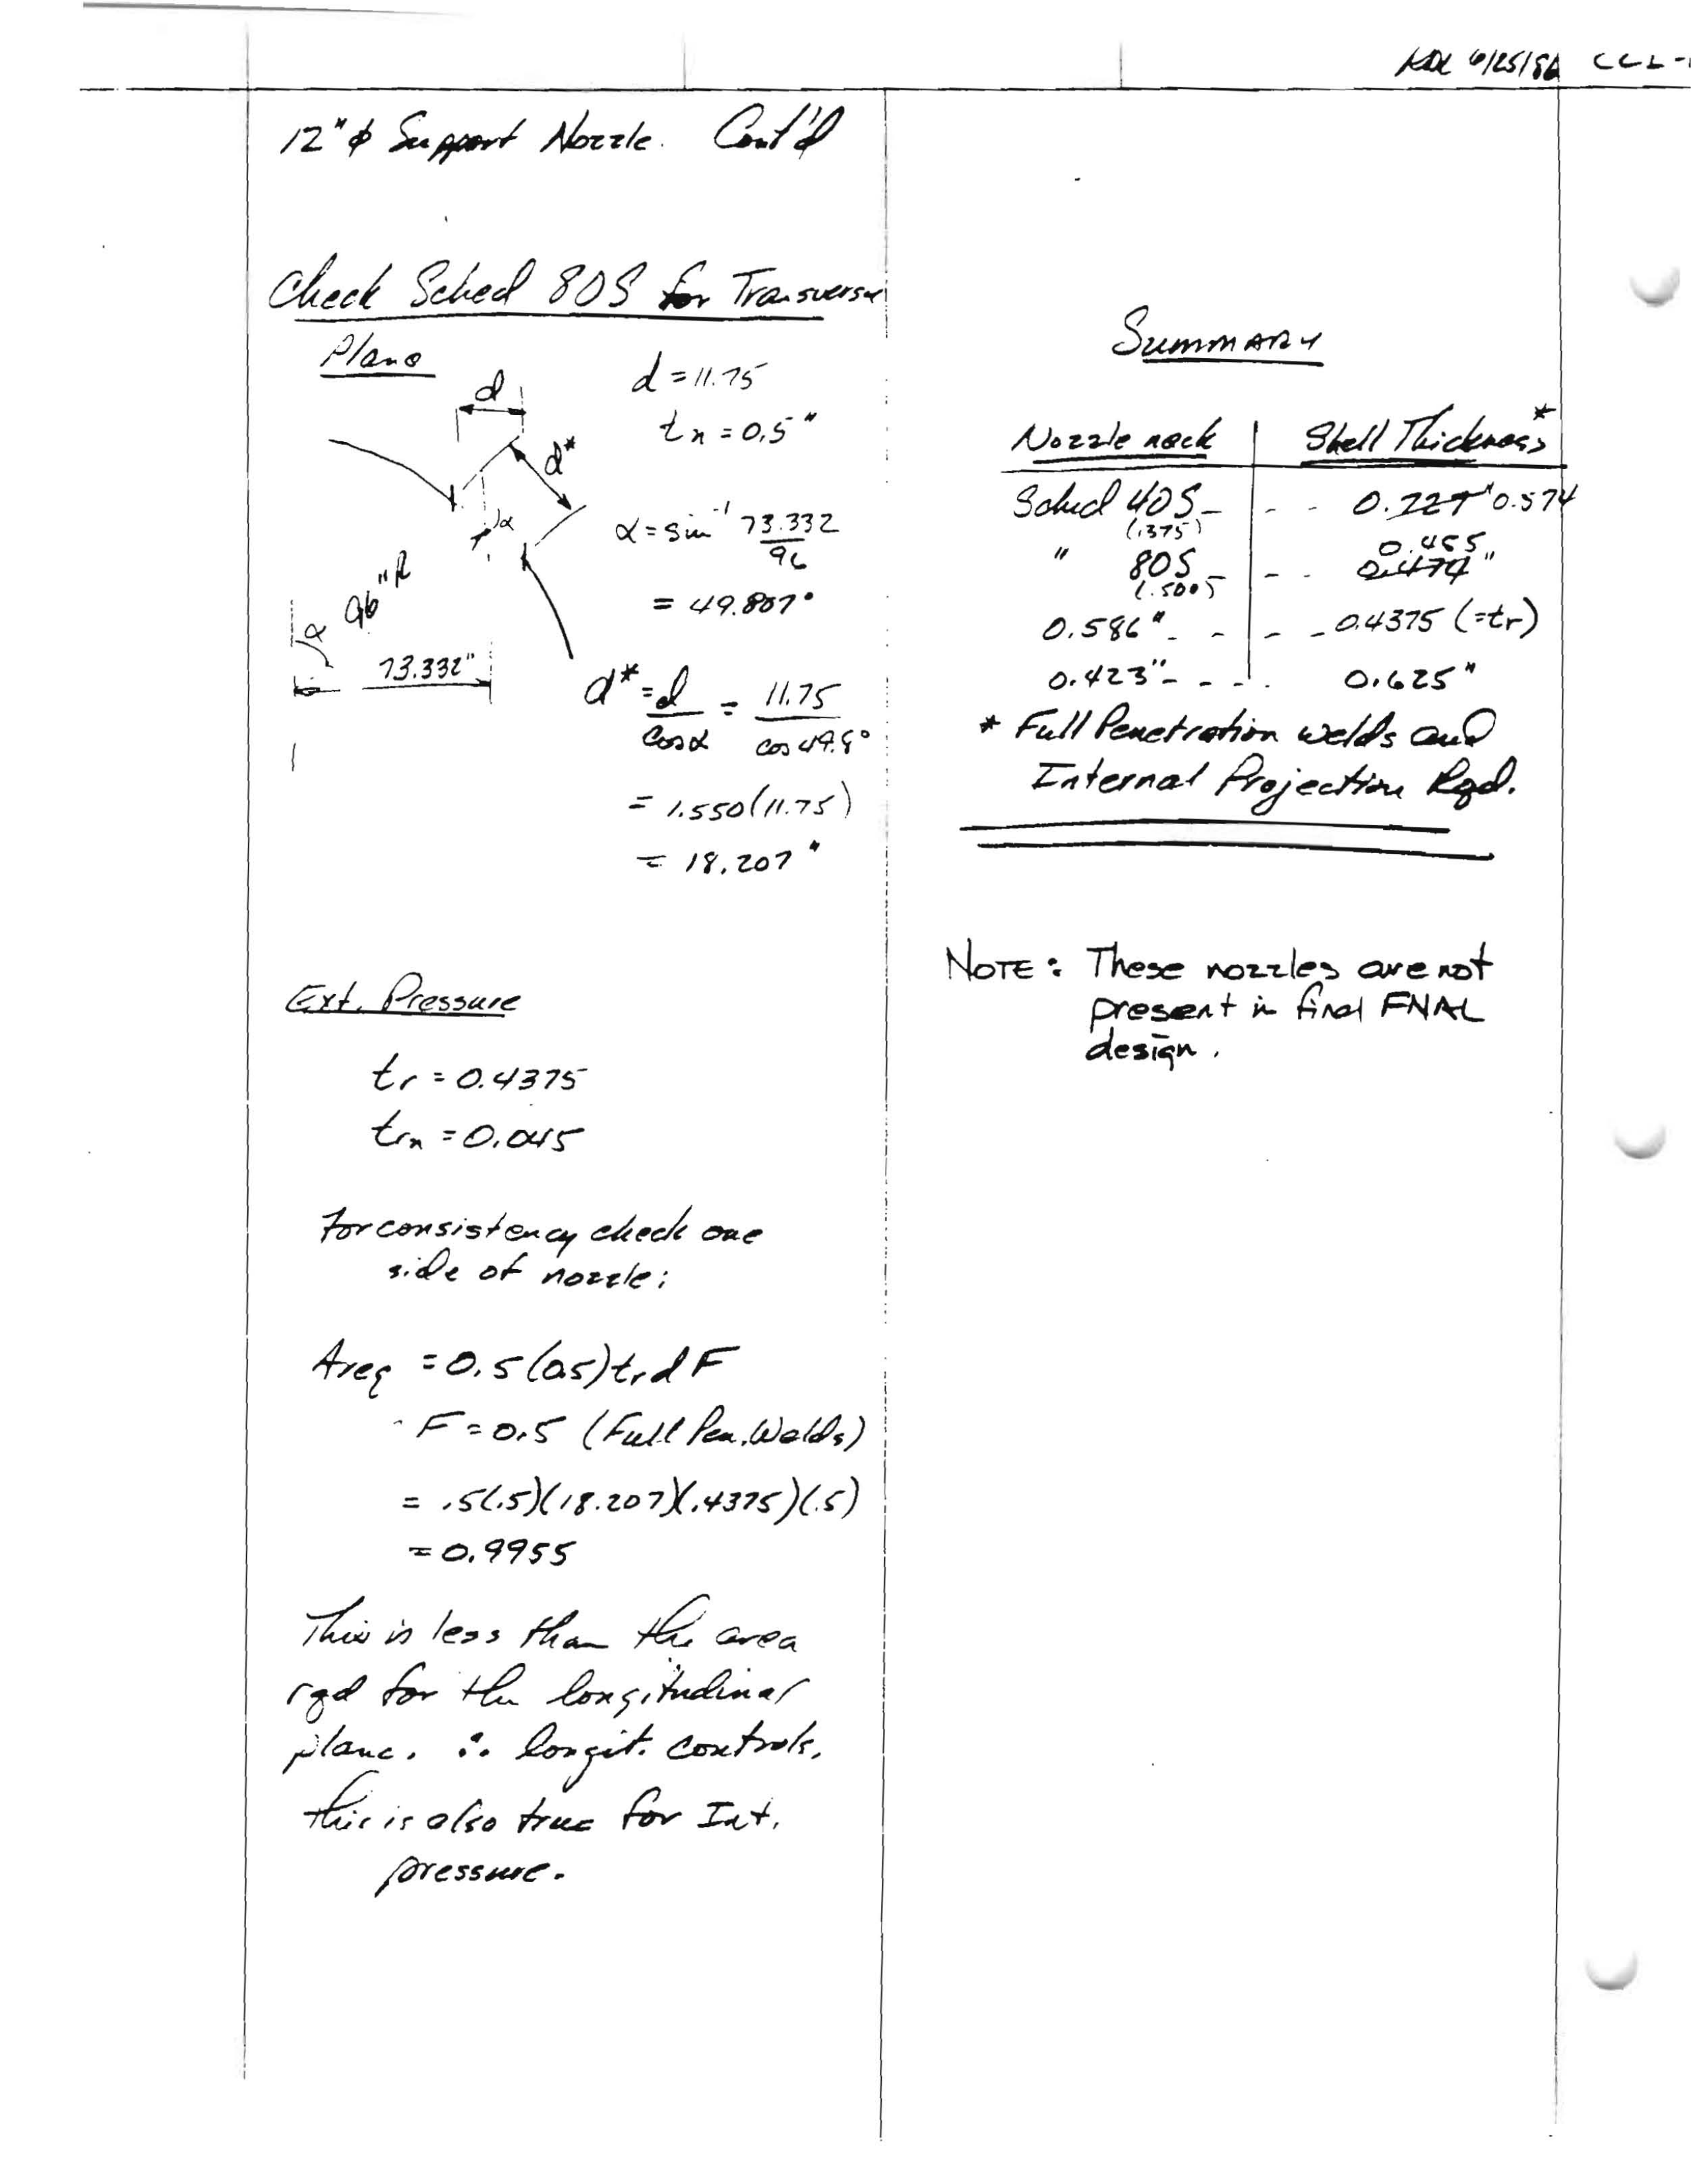 6/25/86 CCL-
12"ϕ Support Nozzle. Cont'd
Check Sched 80S for Transverse
Plane
d
d = 11.75
tn = 0.5"
d*
α
α = sin⁻¹ 73.332/96
= 49.807°
96"R
α
73.332"
d* = d/cosα = 11.75/cos 49.8°
= 1.550(11.75)
= 18.207"
Ext. Pressure
tr = 0.4375
trn = 0.045
For consistency check one
side of nozzle:
Areq = 0.5(0.5)trdF
F = 0.5 (Full Pen. Welds)
= .5(.5)(18.207)(.4375)(.5)
= 0.9955
This is less than the area
rqd for the longitudinal
plane. ∴ longit. controls.
this is also true for Int.
pressure.
Summary
Nozzle neck Shell Thickness*
Sched 40S - - - 0.727" 0.574
(.375)
0.455
" 80S - - - 0.474"
(.500)
0.586" - - - - 0.4375 (=tr)
0.423" - - - - 0.625"
* Full Penetration welds and
Internal Projection Rqd.
NOTE: These nozzles are not
present in final FNAL
design.